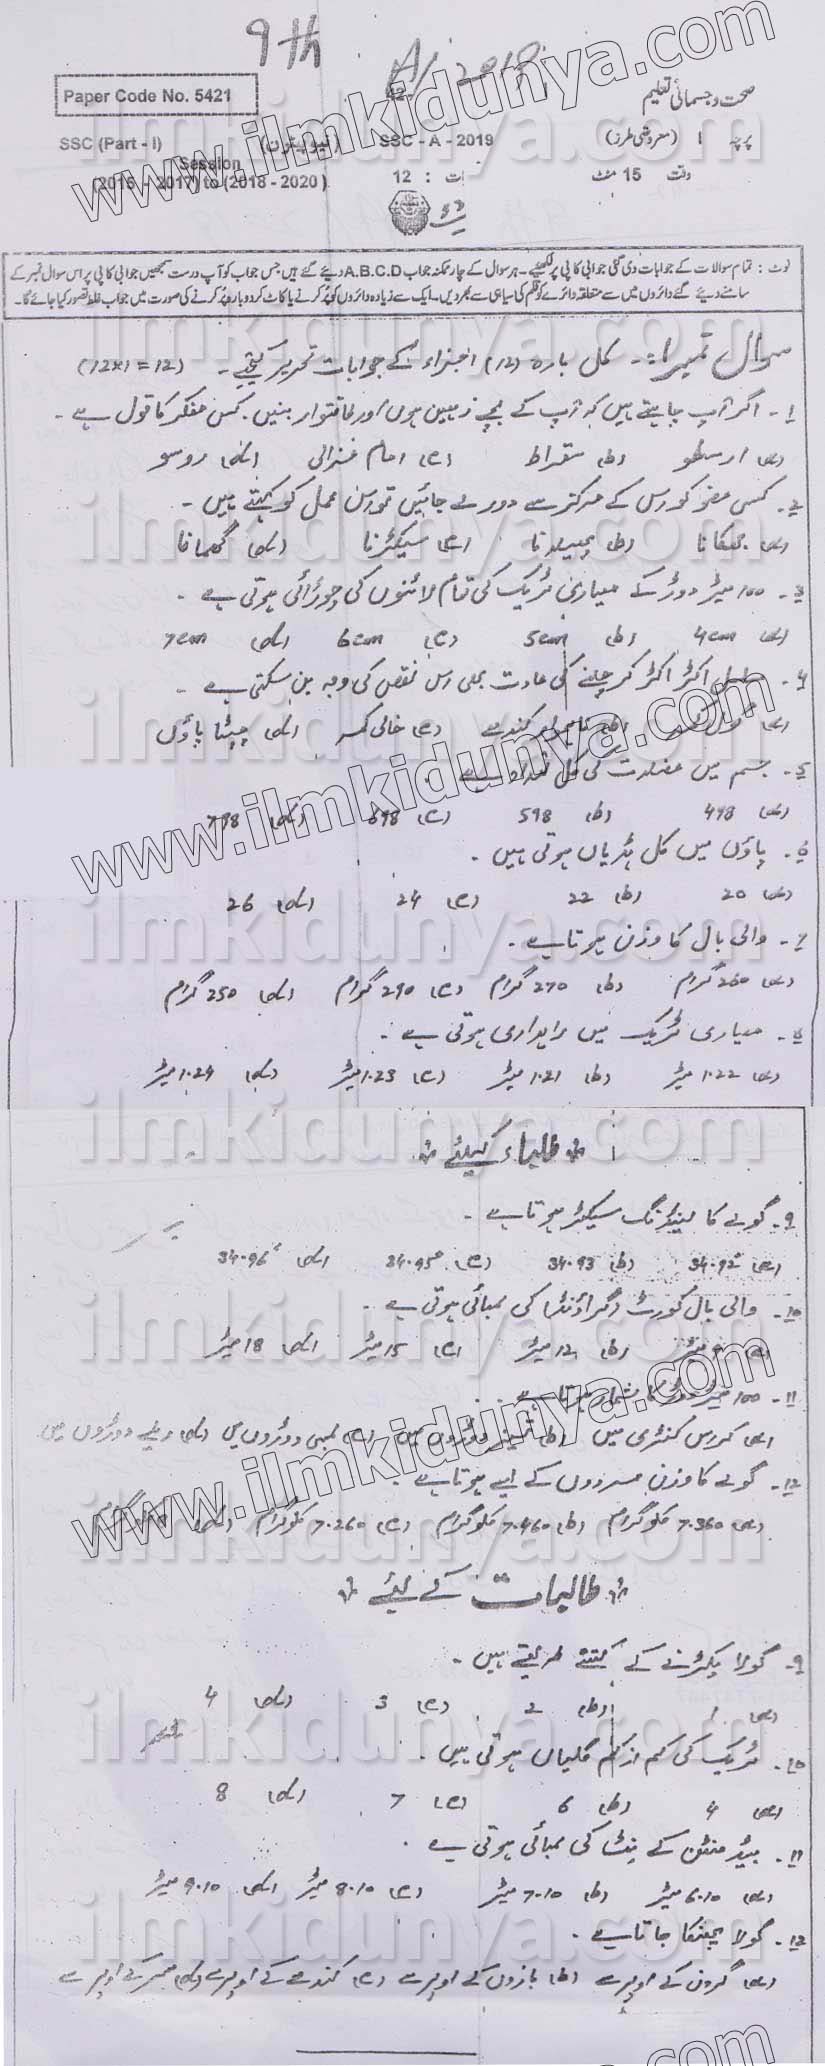 9th A/2019
42-
صحت و جسمانی تعلیم
Paper Code No. 5421
پرچہ I (معروضی طرز)
SSC - A - 2019
SSC (Part - I)
وقت 15 منٹ
12 :
Session
(2015 - 2017) to (2018 - 2020)
نوٹ : تمام سوالات کے جوابات دی گئی جوابی کاپی پر لکھیئے۔ ہر سوال کے چار ممکنہ جواب A.B.C.D دیئے گئے ہیں جس جواب کو آپ درست سمجھیں جوابی کاپی پر اس سوال نمبر کے
سامنے دیئے گئے دائروں میں سے متعلقہ دائرے کو قلم کی سیاہی سے بھر دیں۔ ایک سے زیادہ دائروں کو پُر کرنے یا کاٹ کر دوبارہ پُر کرنے کی صورت میں جواب غلط تصور کیا جائے گا۔
سوال نمبر 1:- کل بارہ (12) اجزاء کے جوابات تحریر کیجئے۔ (12x1=12)
1۔ اگر آپ چاہتے ہیں کہ آپ کے بچے ذہین ہوں اور طاقتور بنیں۔ کس مفکر کا قول ہے۔
(a) ارسطو (b) سقراط (c) امام غزالی (d) روسو
2۔ کسی عضو کو اس کے مرکز سے دور لے جائیں تو اس عمل کو کہتے ہیں۔
(a) جھکانا (b) پھیلانا (c) سیکڑنا (d) گھمانا
3۔ 100 میٹر دوڑ کے معیاری ٹریک کی تمام لائنوں کی چوڑائی ہوتی ہے۔
(a) 4cm (b) 5cm (c) 6cm (d) 7cm
4۔ اکڑ اکڑ کر چلنے کی عادت بھی اس نقص کی وجہ بن سکتی ہے۔
(a) گول (b) کندھے (c) خالی کمر (d) چپٹا پاؤں
5۔ جسم میں عضلات کی کل تعداد ہے
(a) 498 (b) 598 (c) 698 (d) 798
6۔ پاؤں میں کل ہڈیاں ہوتی ہیں۔
(a) 20 (b) 22 (c) 24 (d) 26
7۔ والی بال کا وزن ہوتا ہے۔
(a) 260 گرام (b) 270 گرام (c) 290 گرام (d) 250 گرام
8۔ معیاری ٹریک میں راہداری ہوتی ہے۔
(a) 1.22 میٹر (b) 1.21 میٹر (c) 1.23 میٹر (d) 1.24 میٹر
* طلباء کیلئے *
9۔ گولے کا لینڈنگ سیکٹر ہوتا ہے۔
(a) 34.92° (b) 34.93 (c) 34.95° (d) 34.96°
10۔ والی بال کورٹ / گراؤنڈ کی لمبائی ہوتی ہے۔
(a) 9 میٹر (b) 12 میٹر (c) 15 میٹر (d) 18 میٹر
11۔ 100 میٹر دوڑ کا شمار ہوتا ہے۔
(a) کراس کنٹری میں (b) تیز دوڑوں میں (c) لمبی دوڑوں میں (d) ریلے دوڑوں میں
12۔ گولے کا وزن مردوں کے لیے ہوتا ہے۔
(a) 7.360 کلوگرام (b) 7.460 کلوگرام (c) 7.260 کلوگرام (d) کلوگرام
* طالبات کے لیئے *
9۔ گولا پکڑنے کے کتنے طریقے ہیں۔
(a) 1 (b) 2 (c) 3 (d) 4
10۔ ٹریک کی کم از کم گلیاں ہوتی ہیں۔
(a) 4 (b) 6 (c) 7 (d) 8
11۔ بیڈ منٹن کے نیٹ کی لمبائی ہوتی ہے۔
(a) 6.10 میٹر (b) 7.10 میٹر (c) 8.10 میٹر (d) 9.10 میٹر
12۔ گولا پھینکا جاتا ہے۔
(a) گردن کے اوپر سے (b) بازوں کے اوپر سے (c) کندھے کے اوپر سے (d) سر کے اوپر سے
www.ilmkidunya.com
www.ilmkidunya.com
www.ilmkidunya.com
ilmkidunya.com